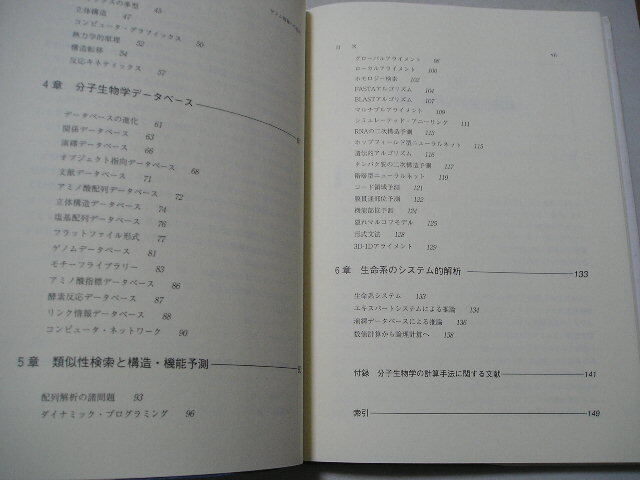 立体構造 47
コンピュータ・グラフィックス 50
熱力学的原理 52
構造転移 54
反応キネティックス 57
4章 分子生物学データベース
データベースの進化 61
関係データベース 63
演繹データベース 66
オブジェクト指向データベース 68
文献データベース 71
アミノ酸配列データベース 72
立体構造データベース 74
塩基配列データベース 76
フラットファイル形式 77
ゲノムデータベース 81
モチーフライブラリー 83
アミノ酸指標データベース 86
酵素反応データベース 87
リンク情報データベース 88
コンピュータ・ネットワーク 90
5章 類似性検索と構造・機能予測
配列解析の諸問題 93
ダイナミック・プログラミング 96
目 次
グローバルアライメント 98
ローカルアライメント 100
ホモロジー検索 102
FASTAアルゴリズム 104
BLASTアルゴリズム 107
マルチプルアライメント 109
シミュレーテッド・アニーリング 111
RNAの二次構造予測 115
ホップフィールド型ニューラルネット 115
遺伝的アルゴリズム 116
タンパク質の二次構造予測 117
階層型ニューラルネット 119
コード領域予測 121
膜貫通部位予測 122
機能部位予測 124
隠れマルコフモデル 125
形式文法 128
3D-1Dアライメント 129
6章 生命系のシステム的解析 133
生命系システム 133
エキスパートシステムによる推論 134
演繹データベースによる推論 136
数値計算から論理計算へ 138
付録 分子生物学の計算手法に関する文献 141
索引 149